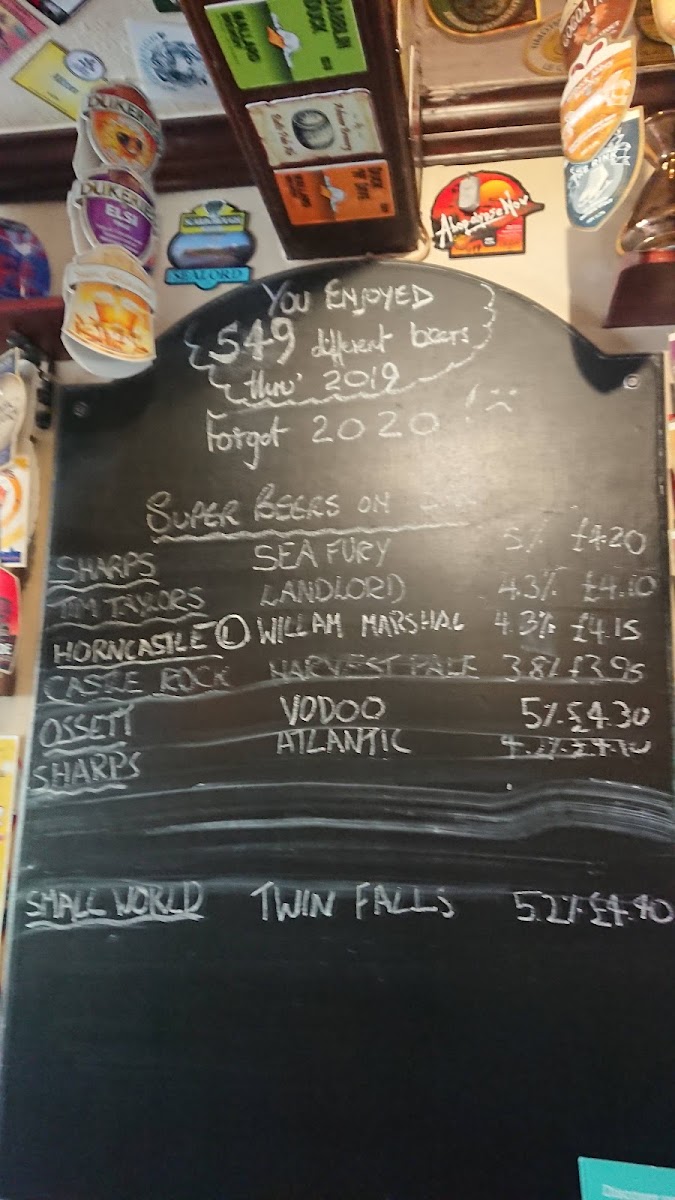 MALLARD
DUKERIES
DUKERIES
ELSI
SEALORD
AlnporterNov
YOU ENJOYED
549 different beers
thro' 2019
Forgot 2020 !
SUPER BEERS ON
SHARPS SEA FURY 5% £4.20
TIM TAYLORS LANDLORD 4.3% £4.10
HORNCASTLE ① WILLAM MARSHAL 4.3% £4.15
CASTLE ROCK HARVEST PALE 3.8% £3.95
OSSETT VODOO 5% £4.30
SHARPS ATLANTIC £4.10
SMALL WORLD TWIN FALLS 5.2% £4.40